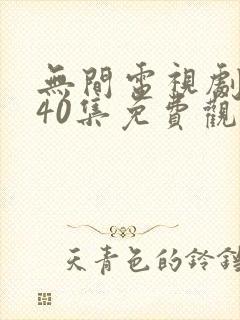 無間電視劇
40集免費觀
天青色的鈴鐺